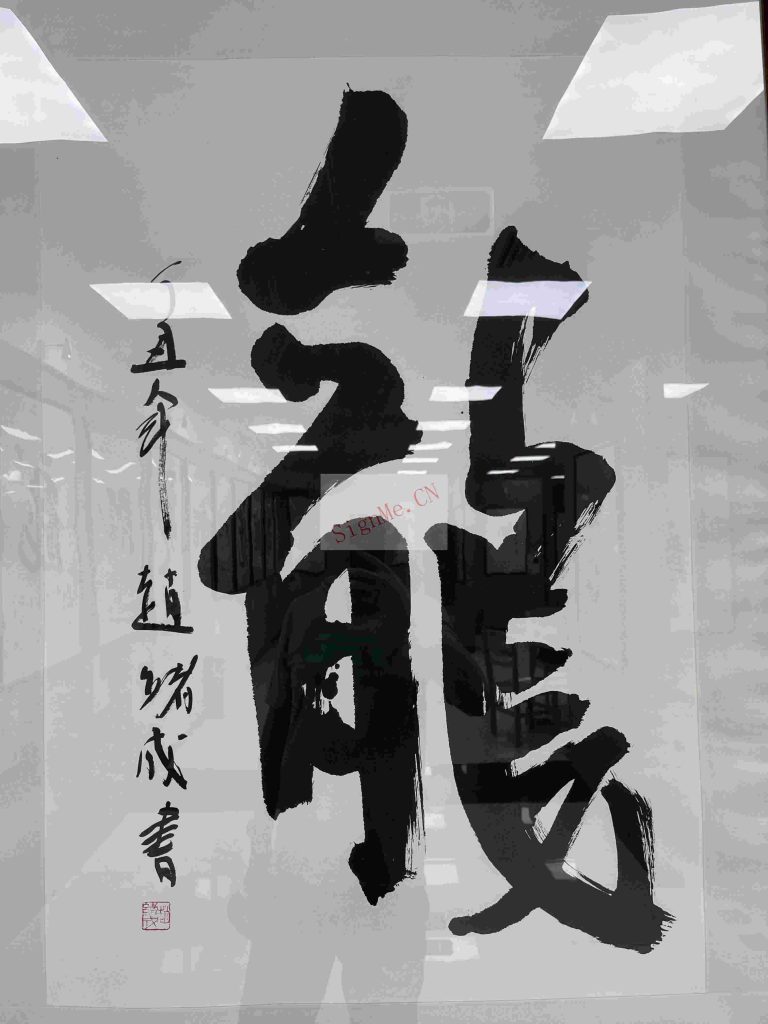 龍
辛丑年 趙緒成書
SignMe.CN